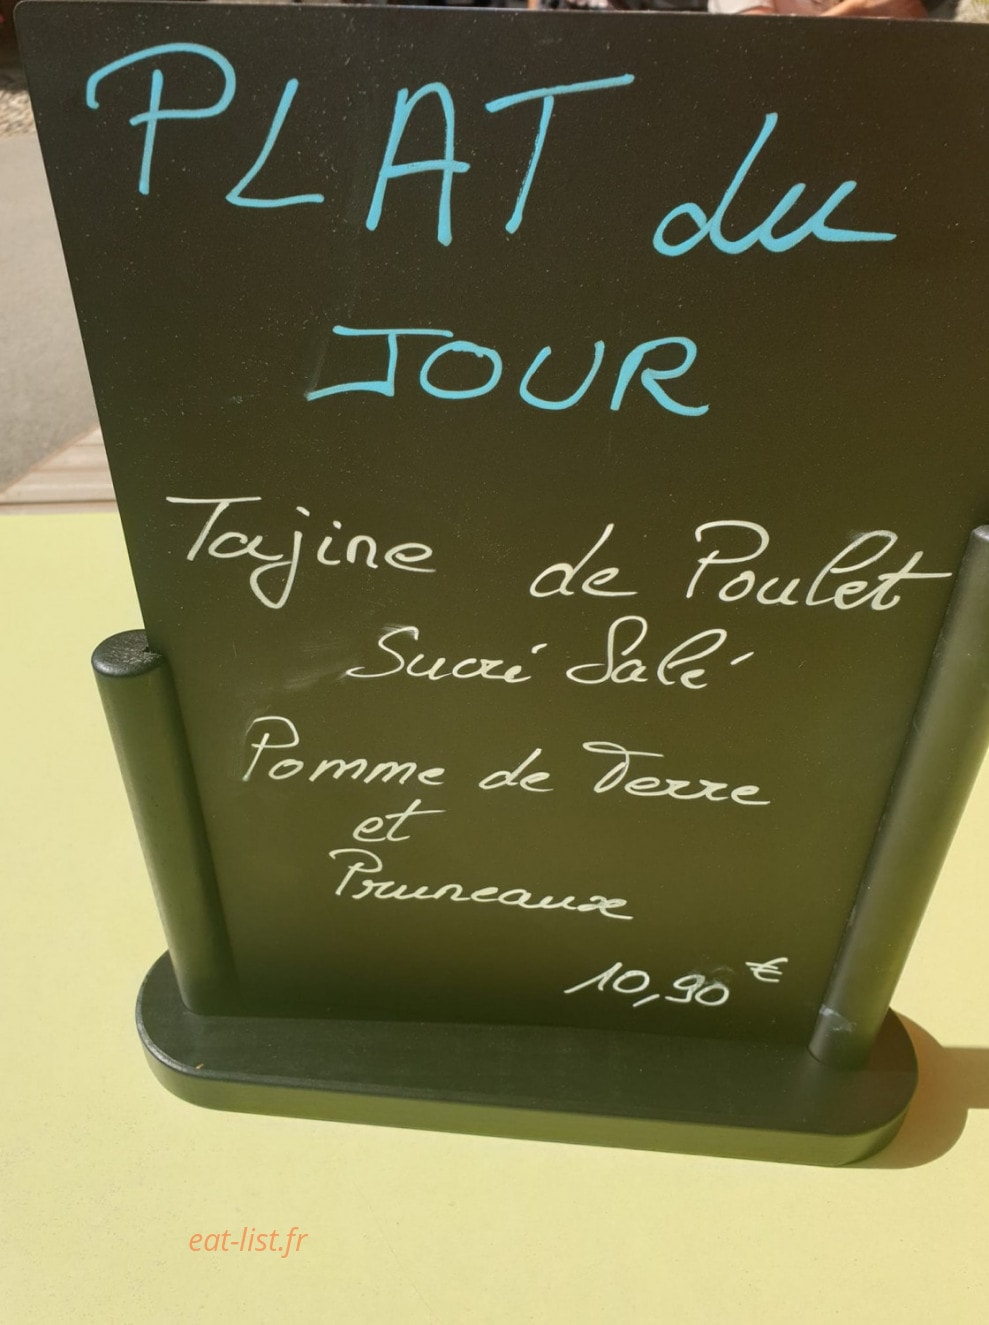 PLAT du
JOUR
Tajine de Poulet
Sucré Salé
Pomme de Terre
et
Pruneaux
10,90 €
eat-list.fr